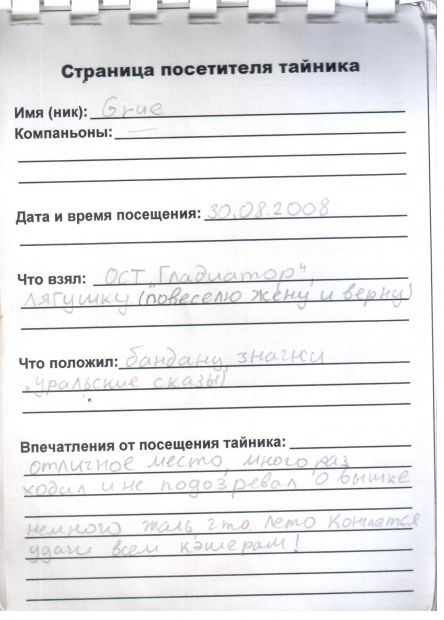 Страница посетителя тайника
Имя (ник): Grue
Компаньоны: —
Дата и время посещения: 30.08.2008
Что взял: ОСТ „Гладиатор",
лягушку (повеселю жену и верну)
Что положил: бандану, значки
„уральские сказы"
Впечатления от посещения тайника:
отличное место, много раз
ходил и не подозревал о вышке
немного жаль, что лето кончается
удачи всем кэшерам!